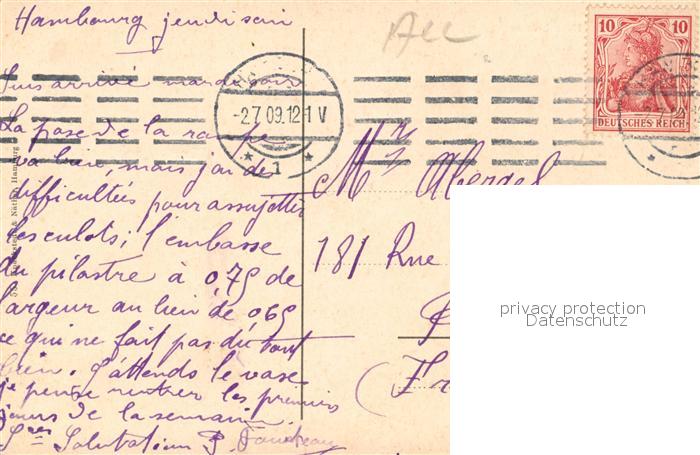 Hambourg jeudi soir
All
10 10
DEUTSCHES REICH
Suis arrivé mardi soir
-2.7.09.12-1 V
* 1 *
La pose de la rampe
va bien, mais j'ai de
difficultées pour assujettir
les culots; l'embasse
du pilastre à 0,75 de
largeur au lieu de 0,65
ce qui ne fait pas du tout
bien. J'attends le vase
je pense rentrer les premiers
jours de la semaine.
Salutation P.
Mr Abergel
181 Rue
(Fr
privacy protection
Datenschutz